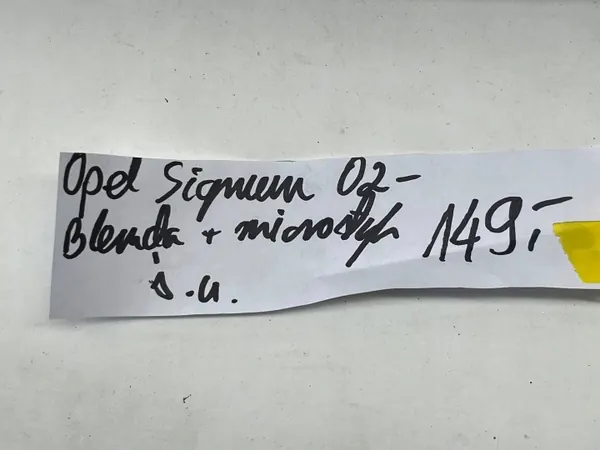 Opel Signum 02-
Blenda + microstyk 149,-
s.u.